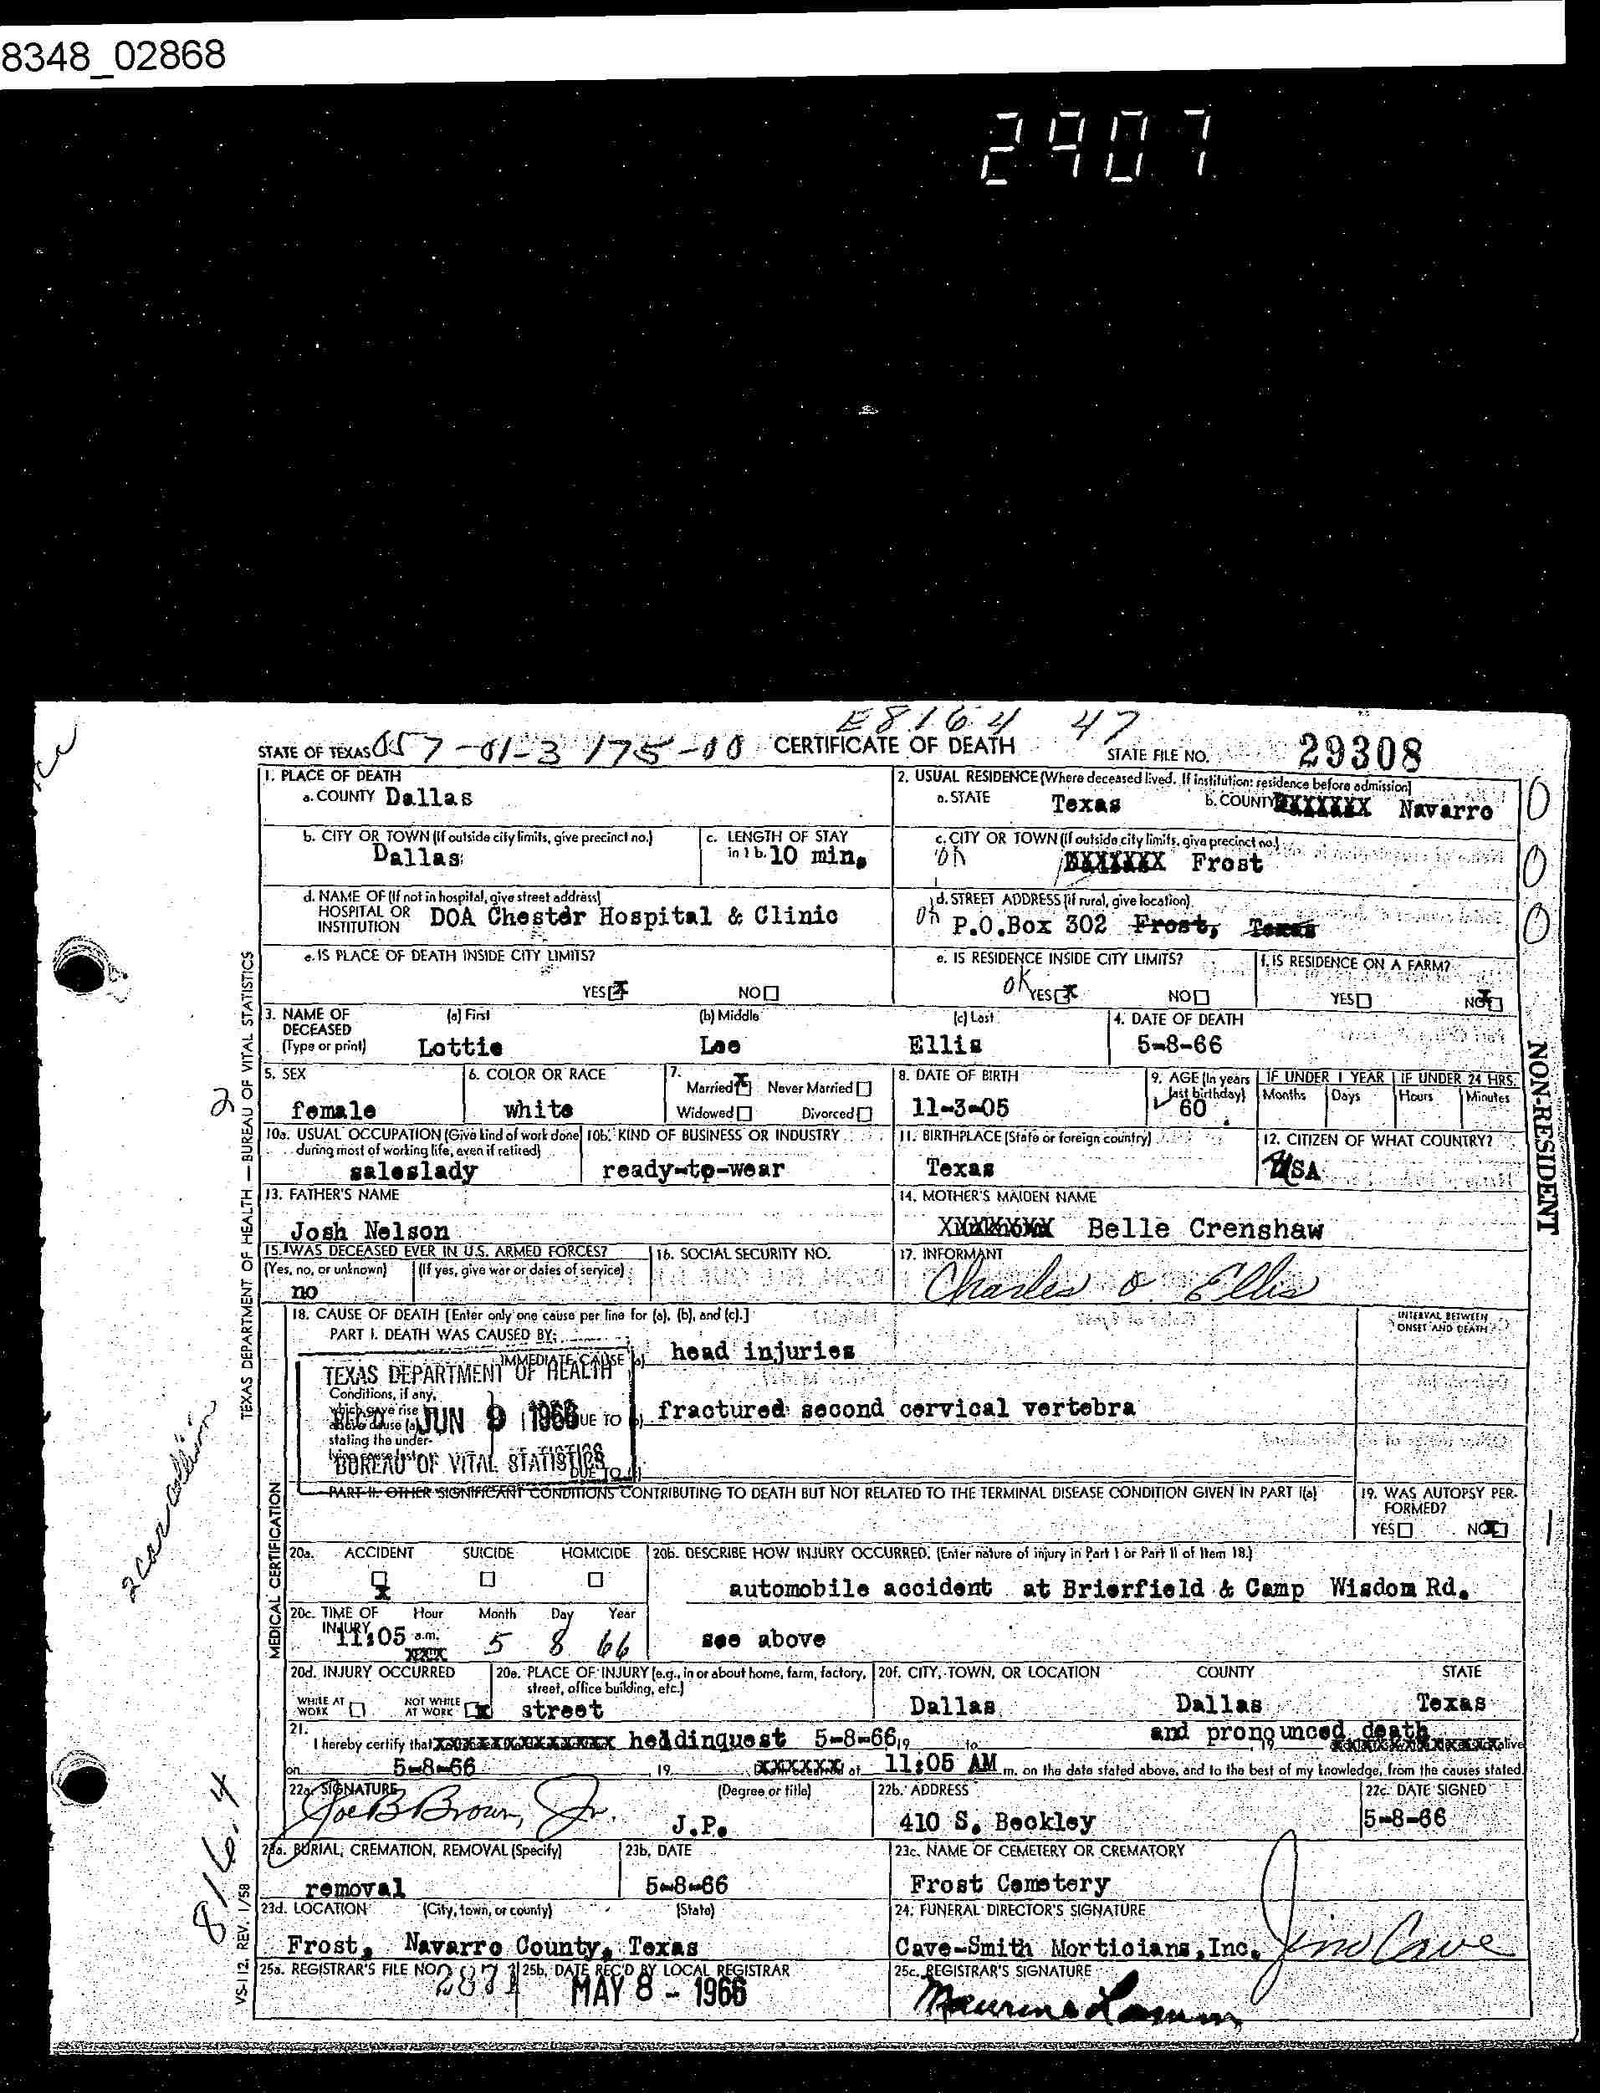 8348_02868
2907
E8164 47
STATE OF TEXAS 057-01-3 175-00 CERTIFICATE OF DEATH STATE FILE NO. 29308
1. PLACE OF DEATH
a. COUNTY Dallas
2. USUAL RESIDENCE (Where deceased lived. If institution: residence before admission)
a. STATE Texas b. COUNTY Navarro
b. CITY OR TOWN (If outside city limits, give precinct no.)
Dallas
c. LENGTH OF STAY
in 1 b. 10 min.
c. CITY OR TOWN (If outside city limits, give precinct no.)
ok Frost
d. NAME OF (If not in hospital, give street address)
HOSPITAL OR
INSTITUTION DOA Chester Hospital & Clinic
d. STREET ADDRESS (If rural, give location)
ok P.O.Box 302 Frost, Texas
e. IS PLACE OF DEATH INSIDE CITY LIMITS?
YES X NO
e. IS RESIDENCE INSIDE CITY LIMITS?
ok YES X NO
f. IS RESIDENCE ON A FARM?
YES NO X
NON-RESIDENT
3. NAME OF
DECEASED
(Type or print)
(a) First Lottie
(b) Middle Lee
(c) Last Ellis
4. DATE OF DEATH
5-8-66
5. SEX
female
6. COLOR OR RACE
white
7.
Married X Never Married
Widowed Divorced
8. DATE OF BIRTH
11-3-05
9. AGE (In years
last birthday)
60
IF UNDER 1 YEAR IF UNDER 24 HRS.
Months Days Hours Minutes
10a. USUAL OCCUPATION (Give kind of work done
during most of working life, even if retired)
saleslady
10b. KIND OF BUSINESS OR INDUSTRY
ready-to-wear
11. BIRTHPLACE (State or foreign country)
Texas
12. CITIZEN OF WHAT COUNTRY?
USA
13. FATHER'S NAME
Josh Nelson
14. MOTHER'S MAIDEN NAME
Belle Crenshaw
15. WAS DECEASED EVER IN U.S. ARMED FORCES?
(Yes, no, or unknown) (If yes, give war or dates of service)
no
16. SOCIAL SECURITY NO.
17. INFORMANT
Charles O. Ellis
TEXAS DEPARTMENT OF HEALTH — BUREAU OF VITAL STATISTICS
2
MEDICAL CERTIFICATION
18. CAUSE OF DEATH [Enter only one cause per line for (a), (b), and (c).]
PART I. DEATH WAS CAUSED BY:
IMMEDIATE CAUSE (a) head injuries
INTERVAL BETWEEN
ONSET AND DEATH
Conditions, if any,
which gave rise to
above cause (a),
stating the under-
lying cause last.
DUE TO (b) fractured second cervical vertebra
DUE TO
TEXAS DEPARTMENT OF HEALTH
REC'D JUN 9 1966
BUREAU OF VITAL STATISTICS
PART II. OTHER SIGNIFICANT CONDITIONS CONTRIBUTING TO DEATH BUT NOT RELATED TO THE TERMINAL DISEASE CONDITION GIVEN IN PART I(a)
19. WAS AUTOPSY PER-
FORMED?
YES NO X
2 car collision
20a. ACCIDENT SUICIDE HOMICIDE
X
20b. DESCRIBE HOW INJURY OCCURRED. (Enter nature of injury in Part I or Part II of Item 18.)
automobile accident at Brierfield & Camp Wisdom Rd.
see above
20c. TIME OF Hour Month Day Year
INJURY
11:05 a.m. 5 8 66
20d. INJURY OCCURRED
WHILE AT WORK NOT WHILE AT WORK X
20e. PLACE OF INJURY (e.g., in or about home, farm, factory,
street, office building, etc.)
street
20f. CITY, TOWN, OR LOCATION COUNTY STATE
Dallas Dallas Texas
21.
I hereby certify that heldinquest 5-8-66, 19 to 19 and pronounced death alive
on 5-8-66 19 at 11:05 AM m. on the date stated above, and to the best of my knowledge, from the causes stated.
22a. SIGNATURE (Degree or title)
Joe B Brown, Jr. J.P.
22b. ADDRESS
410 S. Beckley
22c. DATE SIGNED
5-8-66
816.4
23a. BURIAL, CREMATION, REMOVAL (Specify)
removal
23b. DATE
5-8-66
23c. NAME OF CEMETERY OR CREMATORY
Frost Cemetery
23d. LOCATION (City, town, or county) (State)
Frost, Navarro County, Texas
24. FUNERAL DIRECTOR'S SIGNATURE
Cave-Smith Morticians,Inc. Jim Cave
25a. REGISTRAR'S FILE NO.
25b. DATE REC'D BY LOCAL REGISTRAR
MAY 8 - 1966
25c. REGISTRAR'S SIGNATURE
VS-112, REV. 1/58